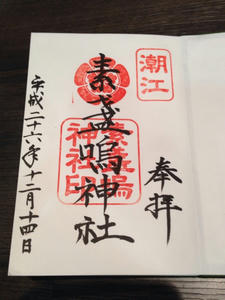 潮江
奉拝
素盞嗚神社
素盞嗚神社印
平成二十六年十二月十四日